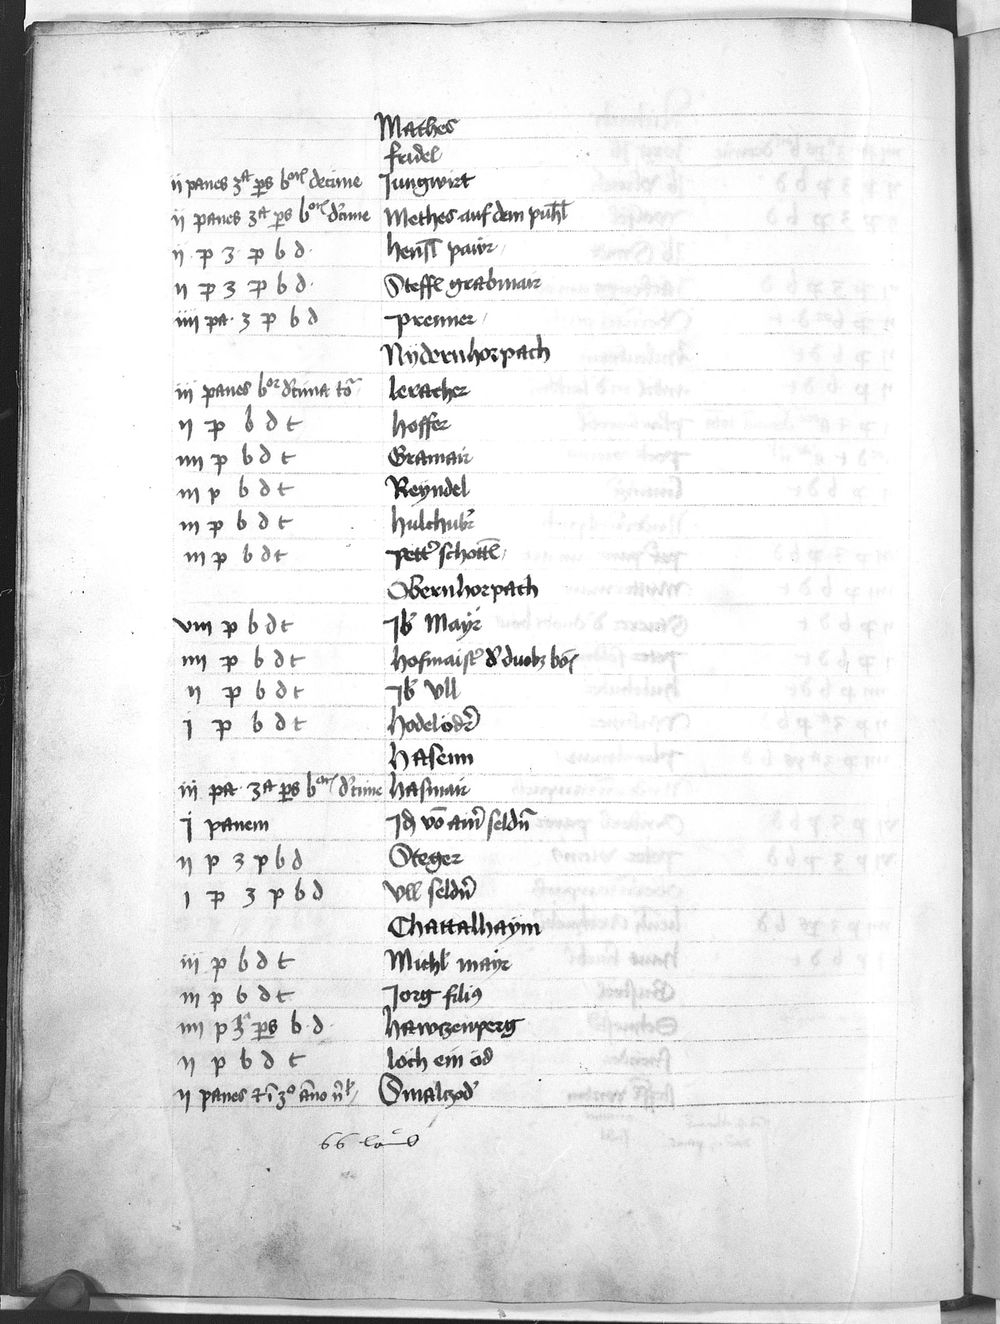 Mathes
fridel
ij panes 3ª ps bor decime Jungwirt
ij panes 3ª ps bor dcime Methes auf dem puhl
ij p 3 p b d hensl pawr
ij p 3 p b d Steffl grabmair
iiij pa 3 p b d prenner
Nydernhorpach
iij panes bor dcima to leracher
ij p b d t hoffer
iiij p b d t Gramair
iij p b d t Reyndel
iij p b d t hulchub
iij p b d t pett schottl
Obernhorpach
viij p b d t Jb Mayr
iiij p b d t hofmaist d duobz bo
ij p b d t Jb Ull
j p b d t hodelod
hasenn
iij pa 3ª ps bor dcime hasmair
j panem Jd vo ain seldn
ij p 3 p b d Steger
j p 3 p b d Ull seldn
Chattalhaym
iij p b d t Michl mayr
iij p b d t Jorg filius
iiij p 3ª ps b d hawczenperg
ij p b d t loch ein od
ij panes 3º ano Smalczod
66